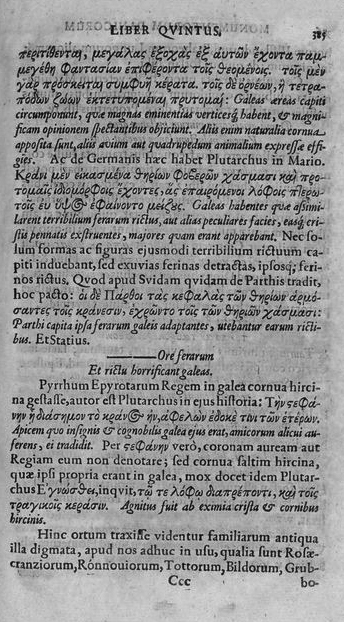 LIBER QVINTUS, 385
περιτίθενται, μεγάλας ἐξοχὰς ἐξ αὐτῶν ἔχοντα παμ-
μεγέθη φαντασίαν ἐπιφέροντα τοῖς θεομένοις. τοῖς μὲν
γὰρ πρόσκειται συμφυῆ κέρατα. τοῖς δὲ ὀρνέων, ἢ τετρα-
πόδων ζώων ἐκτετυπομέναι προτομαί: Galeas æreas capiti
circumponunt, quæ magnas eminentias verticesq́ habent, & magni-
ficam opinionem spectantibus objiciunt. Aliis enim naturalia cornua
apposita sunt, aliis avium aut quadrupedum animalium expressæ effi-
gies. Ac de Germanis hæc habet Plutarchus in Mario.
Κράνη μὲν εἰκασμένα θηρίων φοβερῶν χάσμασι καὶ προ-
τομαῖς ἰδιομόρφοις ἔχοντες, ἃς ἐπαιρόμενοι λόφοις πτερω-
τοῖς εὐ ὕψος ἐφαίνοντο μείζες. Galeas habentes quæ assimi-
larent terribilium ferarum rictus, aut alias peculiares facies, easq́ cri-
stis pennatis exstruentes, majores quam erant apparebant. Nec so-
lum formas ac figuras ejusmodi terribilium rictuum ca-
piti induebant, sed exuvias ferinas detractas, ipsosq́; feri-
nos rictus. Quod apud Svidam qvidam de Parthis tradit,
hoc pacto: οἱ δὲ Πάρθοι τὰς κεφαλὰς τῶν θηρίων ἁρμό-
σαντες τοῖς κράνεσιν, ἐχρῶντο τοῖς τῶν θηρίων χάσμασι:
Parthi capita ipsa ferarum galeis adaptantes, utebantur earum ricti-
bus. Et Statius.
Ore ferarum
Et rictu horrificant galeas.
Pyrrhum Epyrotarum Regem in galea cornua hirci-
na gestasse, autor est Plutarchus in ejus historia: Τὴν στεφά-
νην ἢ διάσημον τὸ κράνος ἦν, ἀφελὼν ἔδοκέ τινι τῶν ἑτέρων.
Apicem quo insignis & cognobilis galea ejus erat, amicorum alicui au-
ferens, ei tradidit. Per στεφάνην verò, coronam auream aut
Regiam eum non denotare; sed cornua saltim hircina,
quæ ipsi propria erant in galea, mox docet idem Plutar-
chus Ἐγνώσθει, inqvit, τῷ τε λόφῳ διαπρέποντι, καὶ τοῖς
τραγικοῖς κέρασιν. Agnitus fuit ab eximia crista & cornibus
hircinis.
Hinc ortum traxisse videntur familiarum antiqua
illa digmata, apud nos adhuc in usu, qualia sunt Rosæ-
cranziorum, Rónnoviorum, Tottorum, Bildorum, Grub-
Ccc bo-